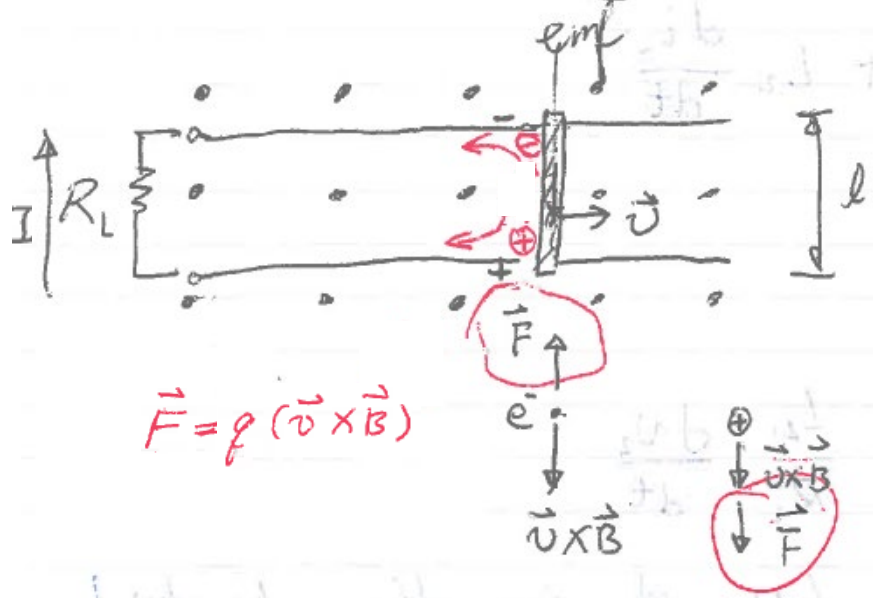 emf
−
⊖
I
R_L
v⃗
l
⊕
+
F⃗
F⃗ = q (v⃗ × B⃗)
e⁻
⊕
v⃗ × B⃗
v⃗ × B⃗
F⃗